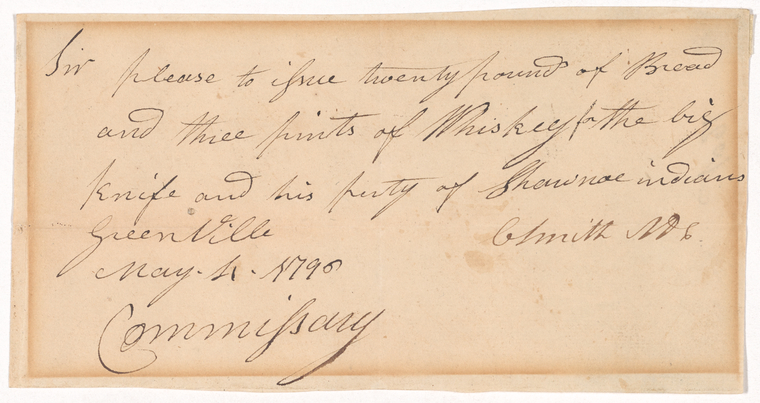 Sir please to issue twenty pounds of Bread
and three pints of Whiskey for the big
Knife and his party of Shawnoe indians
GreenVille
May. 4. 1796
Commissary
CSmith